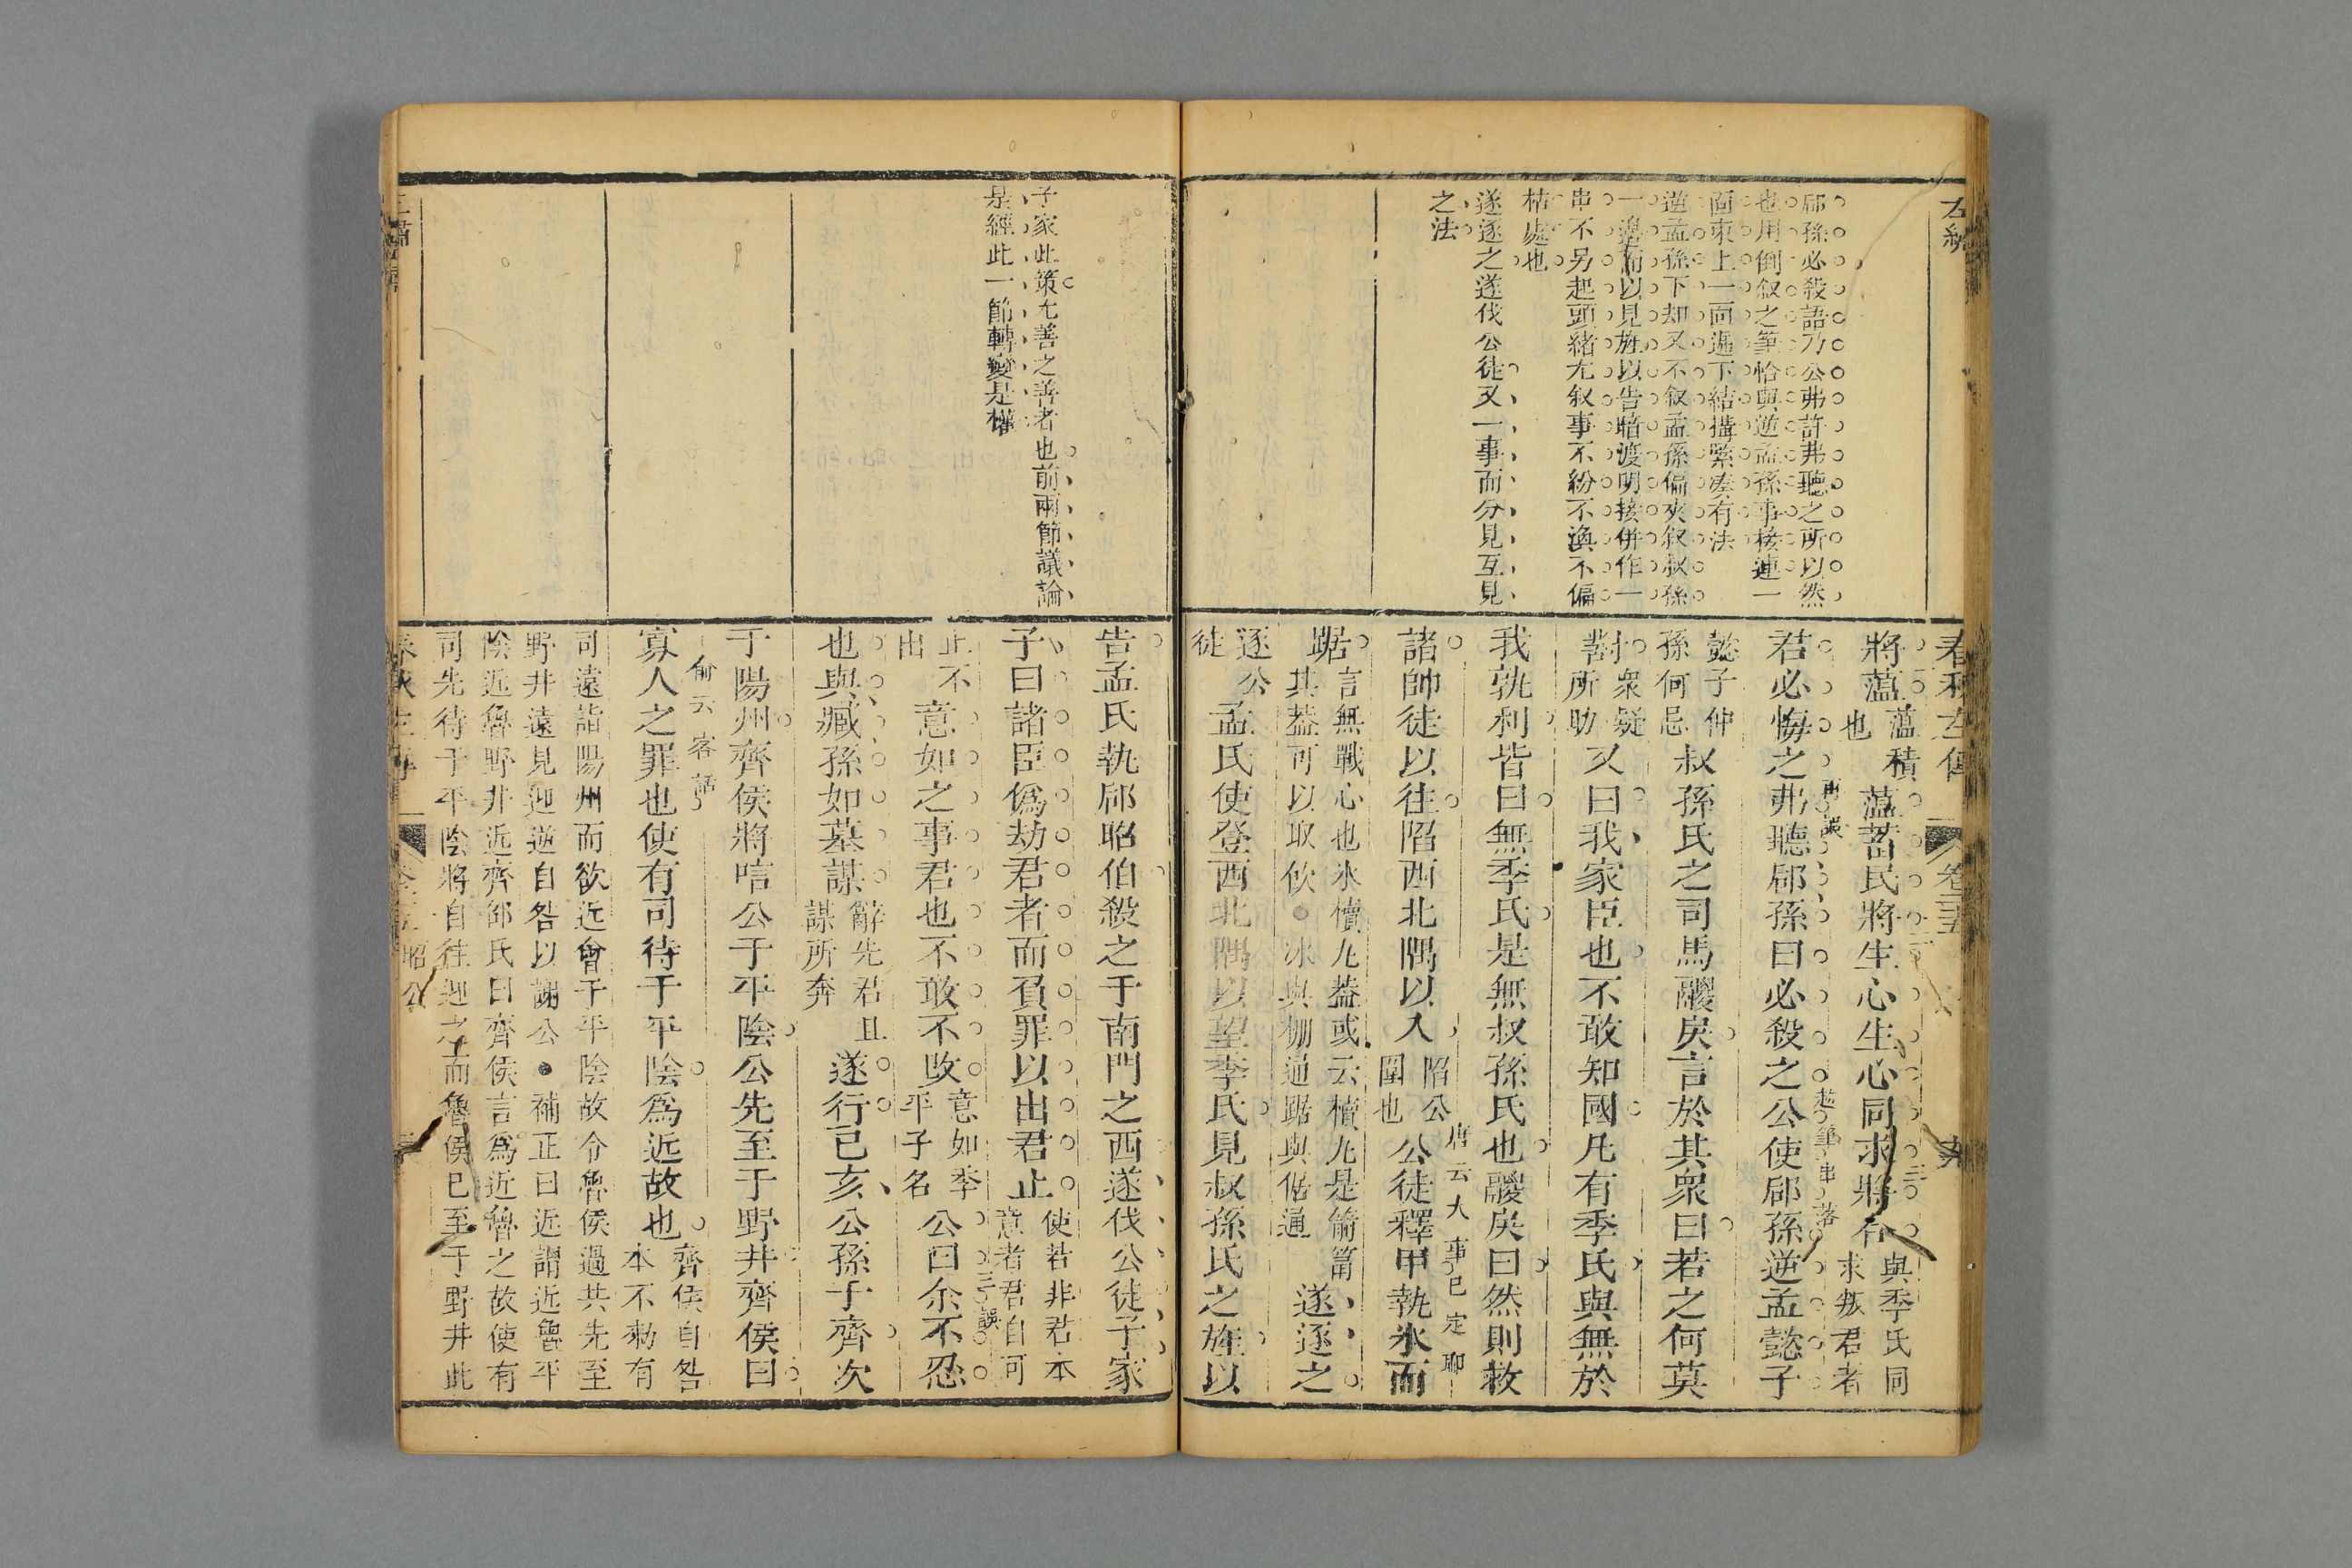 左繡
郈孫必殺語乃公弗許弗聽之所以然
也用倒叙之筆恰與逆孟孫事接連一
面束上一面遞下結搆緊湊有法
逆孟孫下却又不叙孟孫偏夾叙叔孫
一邊而以見旌以告暗渡明接併作一
串不另起頭緒尢叙事不紛不渙不偏
枯處也
遂逐之遂伐公徒又一事而分見互見
之法
春秋左傳 卷二五
將薀薀積也薀蓄民將生心生心同求將合與季氏同求叛君者
君必悔之弗聽郈孫曰必殺之公使郈孫逆孟懿子
懿子仲孫何忌叔孫氏之司馬鬷戾言於其衆曰若之何莫
對衆疑所助又曰我家臣也不敢知國凡有季氏與無於
我孰利皆曰無季氏是無叔孫氏也鬷戾曰然則救
唐云大事已定聊
諸帥徒以往陷西北隅以入陷公圍也公徒釋甲執氷而
踞言無戰心也氷櫝丸葢或云櫝丸是箭筩其葢可以取飲○冰與棚通踞與倨通遂逐之
逐公徒孟氏使登西北隅以望季氏見叔孫氏之旌以
子家此策尢善之善者也前兩節議論
是經此一節轉變是權
告孟氏執郈昭伯殺之于南門之西遂伐公徒子家
子曰諸臣僞劫君者而負罪以出君止使若非君本意者君自可
止不出意如之事君也不敢不改意如季平子名公曰余不忍
也與臧孫如墓謀辭先君且謀所奔遂行己亥公孫于齊次
于陽州齊侯將唁公于平陰公先至于野井齊侯曰
俞云客話
寡人之罪也使有司待于平陰爲近故也齊侯自咎本不勑有
司遠詣陽州而欲近會于平陰故令魯侯過共先至
野井遠見迎逆自咎以謝公●補正曰近謂近魯平
陰近魯野井近齊邵氏曰齊侯言爲近魯之故使有
司先待于平陰將自往迎之而魯侯已至于野井此
春秋左傳 昭公